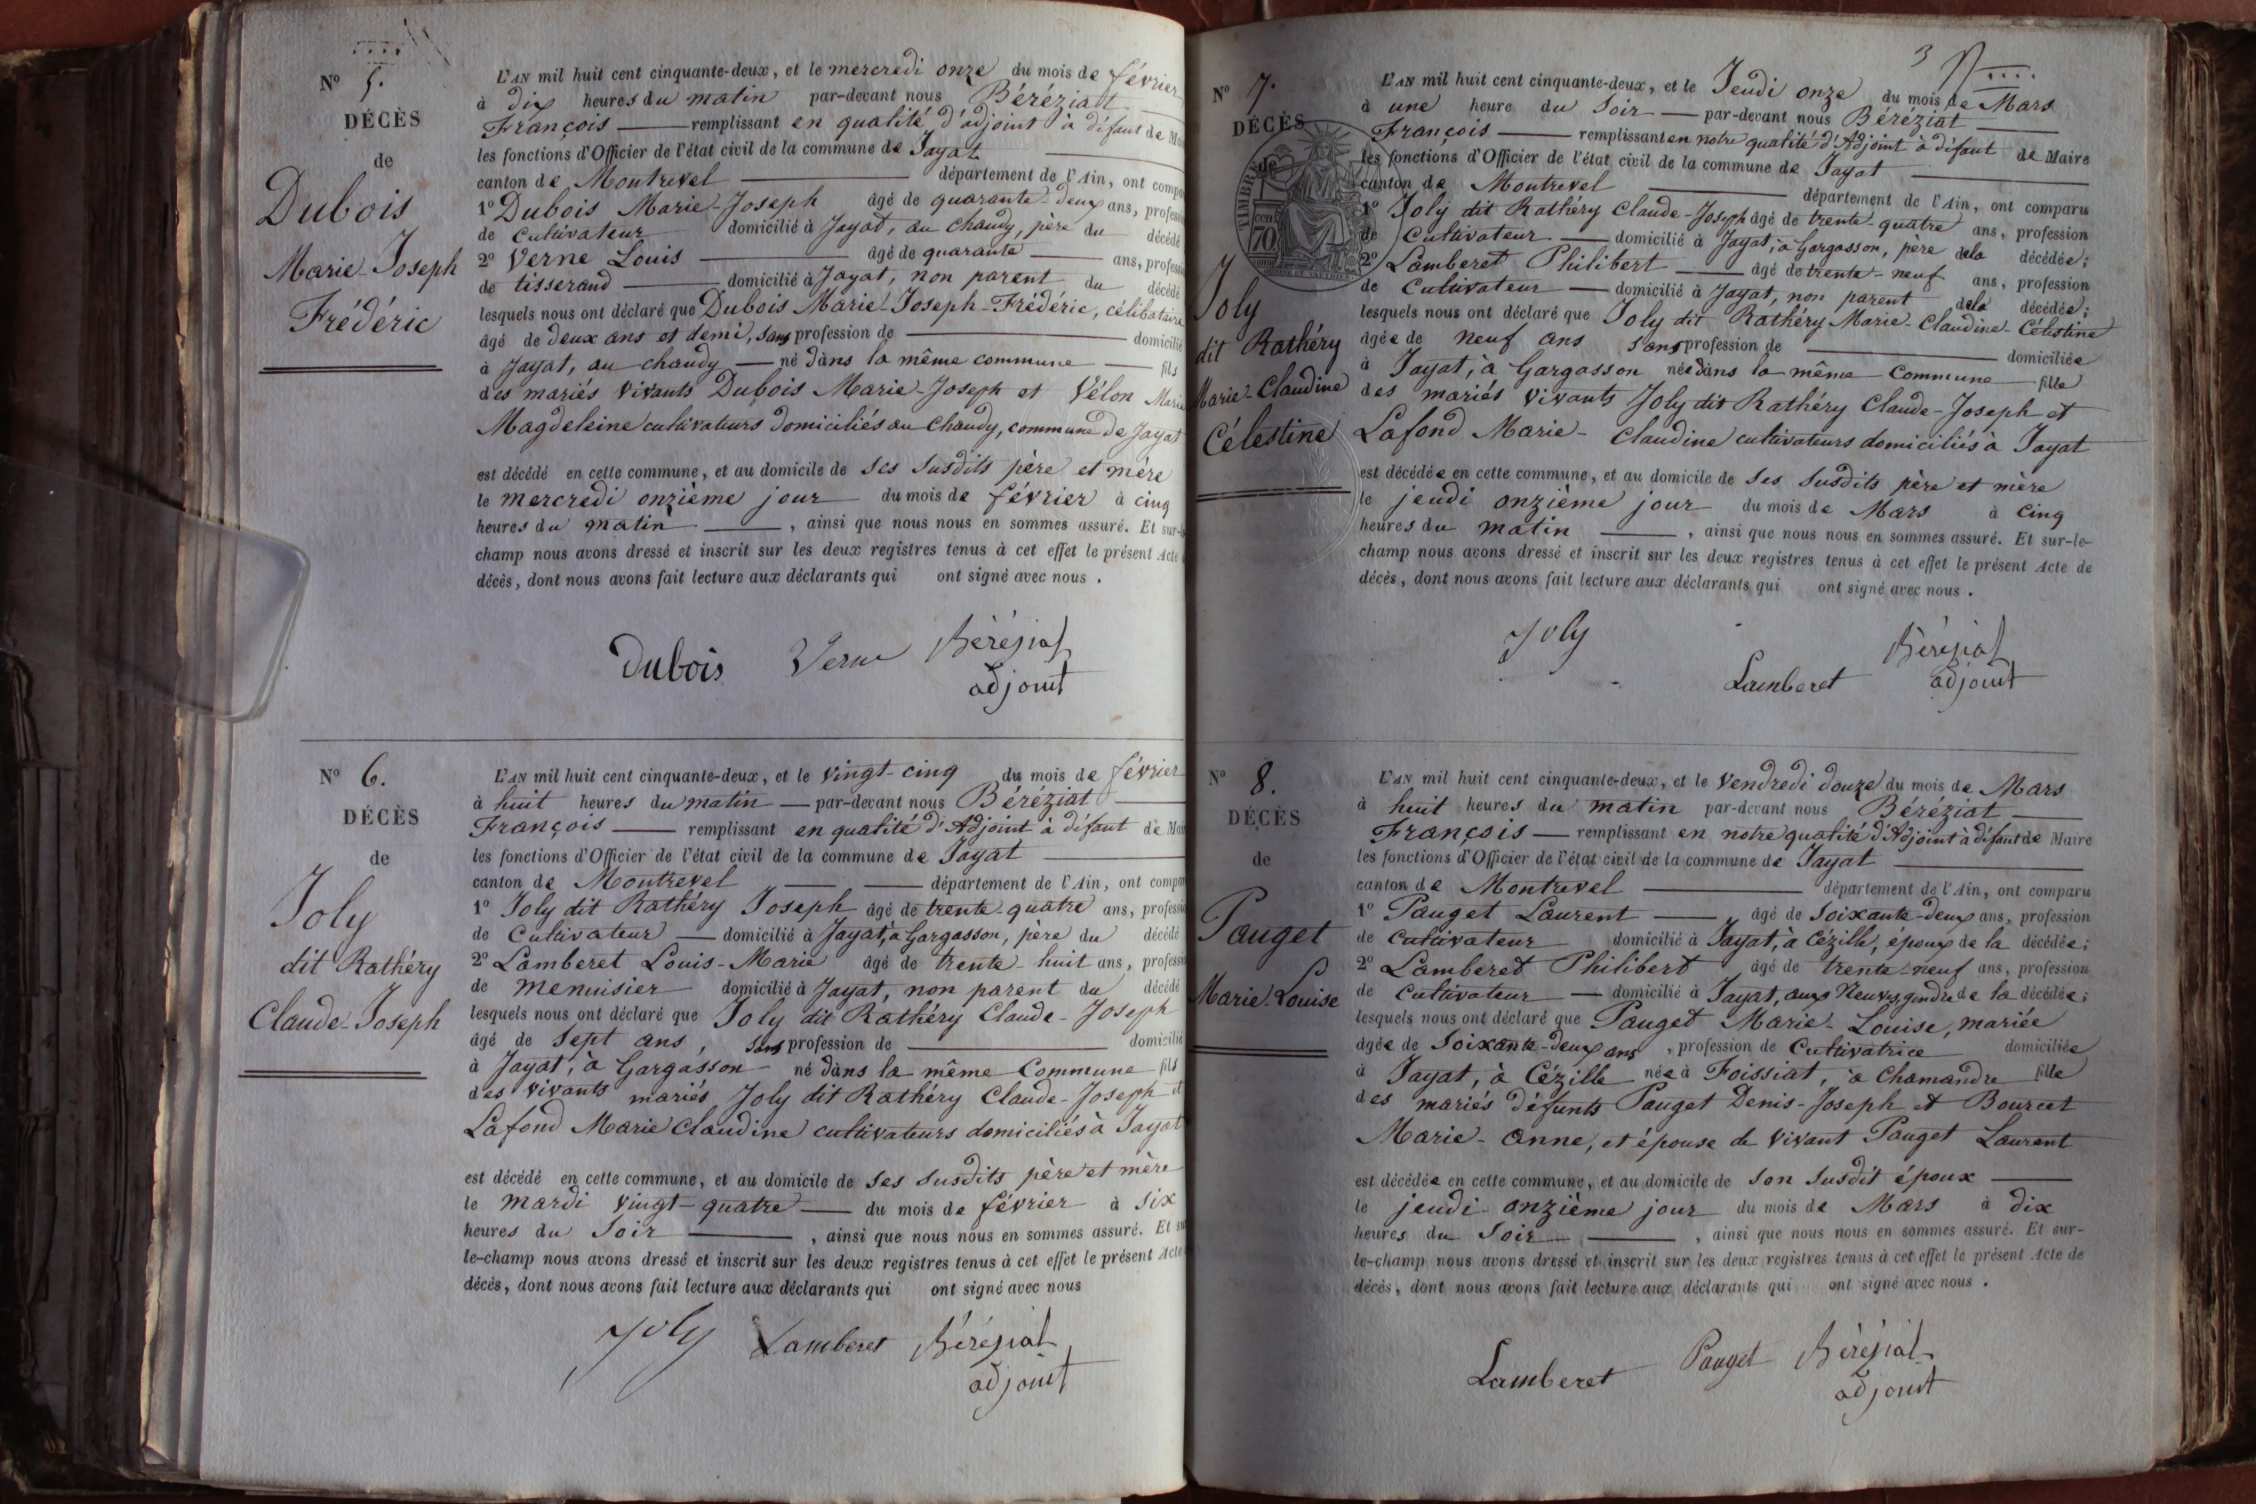 Nº 5.
DÉCÈS
de
Dubois
Marie-Joseph
Frédéric
L'AN mil huit cent cinquante-deux, et le mercredi onze du mois de février
à dix heures du matin par-devant nous Béréziat
François remplissant en qualité d'adjoint à défaut de
les fonctions d'Officier de l'état civil de la commune de Jayat
canton de Montrevel département de l'Ain, ont
1º Dubois Marie-Joseph âgé de quarante-deux ans,
de cultivateur domicilié à Jayat, au Chaudy, père du décédé
2º Verne Louis âgé de quarante ans,
de tisserand domicilié à Jayat, non parent du décédé
lesquels nous ont déclaré que Dubois Marie-Joseph-Frédéric, célibataire
âgé de deux ans et demi, sans profession de domicilié
à Jayat, au chaudy né dans la même commune fils
des mariés vivants Dubois Marie-Joseph et Vélon Marie
Magdeleine cultivateurs domiciliés au Chaudy, commune de Jayat
est décédé en cette commune, et au domicile de ses susdits père et mère
le mercredi onzième jour du mois de février à cinq
heures du matin, ainsi que nous nous en sommes assuré. Et
champ nous avons dressé et inscrit sur les deux registres tenus à cet effet le présent Acte
décès, dont nous avons fait lecture aux déclarants qui ont signé avec nous.
Dubois Verne Béréziat
adjoint
Nº 6.
DÉCÈS
de
Joly
dit Rathéry
Claude-Joseph
L'AN mil huit cent cinquante-deux, et le vingt-cinq du mois de février
à huit heures du matin par-devant nous Béréziat
François remplissant en qualité d'Adjoint à défaut de
les fonctions d'Officier de l'état civil de la commune de Jayat
canton de Montrevel département de l'Ain, ont
1º Joly dit Rathéry Joseph âgé de trente-quatre ans,
de Cultivateur domicilié à Jayat, à Gargasson, père du décédé
2º Lamberet Louis-Marie âgé de trente-huit ans,
de menuisier domicilié à Jayat, non parent du décédé
lesquels nous ont déclaré que Joly dit Rathéry Claude-Joseph
âgé de sept ans, sans profession de domicilié
à Jayat, à Gargasson né dans la même Commune fils
des vivants mariés Joly dit Rathéry Claude-Joseph et
Lafond Marie Claudine cultivateurs domiciliés à Jayat
est décédé en cette commune, et au domicile de ses susdits père et mère
le mardi vingt-quatre du mois de février à six
heures du soir, ainsi que nous nous en sommes assuré. Et
le-champ nous avons dressé et inscrit sur les deux registres tenus à cet effet le présent Acte
décès, dont nous avons fait lecture aux déclarants qui ont signé avec nous
Joly Lamberet Béréziat
adjoint
3
Nº 7.
DÉCÈS
de
TIMBRE
70
Joly
dit Rathéry
Marie-Claudine
Célestine
L'AN mil huit cent cinquante-deux, et le Jeudi onze du mois de Mars
à une heure du soir par-devant nous Béréziat
François remplissant en notre qualité d'Adjoint à défaut de Maire
les fonctions d'Officier de l'état civil de la commune de Jayat
canton de Montrevel département de l'Ain, ont comparu
1º Joly dit Rathéry Claude-Joseph âgé de trente-quatre ans, profession
de Cultivateur domicilié à Jayat, à Gargasson, père dela décédée;
2º Lamberet Philibert âgé de trente-neuf ans, profession
de Cultivateur domicilié à Jayat, non parent dela décédée;
lesquels nous ont déclaré que Joly dit Rathéry Marie-Claudine-Célestine
âgée de neuf ans sans profession de domiciliée
à Jayat, à Gargasson née dans la même Commune fille
des mariés vivants Joly dit Rathéry Claude-Joseph et
Lafond Marie-Claudine cultivateurs domiciliés à Jayat
est décédée en cette commune, et au domicile de ses susdits père et mère
le jeudi onzième jour du mois de Mars à cinq
heures du matin, ainsi que nous nous en sommes assuré. Et sur-le-
champ nous avons dressé et inscrit sur les deux registres tenus à cet effet le présent Acte de
décès, dont nous avons fait lecture aux déclarants qui ont signé avec nous.
Joly Lamberet Béréziat
adjoint
Nº 8.
DÉCÈS
de
Pauget
Marie-Louise
L'AN mil huit cent cinquante-deux, et le Vendredi douze du mois de Mars
à huit heures du matin par-devant nous Béréziat
François remplissant en notre qualité d'Adjoint à défaut de Maire
les fonctions d'Officier de l'état civil de la commune de Jayat
canton de Montrevel département de l'Ain, ont comparu
1º Pauget Laurent âgé de soixante-deux ans, profession
de cultivateur domicilié à Jayat, à Cézille, époux de la décédée;
2º Lamberet Philibert âgé de trente-neuf ans, profession
de cultivateur domicilié à Jayat, aux Neuves, gendre de la décédée;
lesquels nous ont déclaré que Pauget Marie-Louise, mariée
âgée de soixante-deux ans, profession de Cultivatrice domiciliée
à Jayat, à Cézille née à Foissiat, à Chamandre fille
des mariés défunts Pauget Denis-Joseph et Bourcet
Marie-Anne, et épouse de vivant Pauget Laurent
est décédée en cette commune, et au domicile de son susdit époux
le jeudi onzième jour du mois de Mars à dix
heures du soir, ainsi que nous nous en sommes assuré. Et sur-
le-champ nous avons dressé et inscrit sur les deux registres tenus à cet effet le présent Acte de
décès, dont nous avons fait lecture aux déclarants qui ont signé avec nous.
Lamberet Pauget Béréziat
adjoint